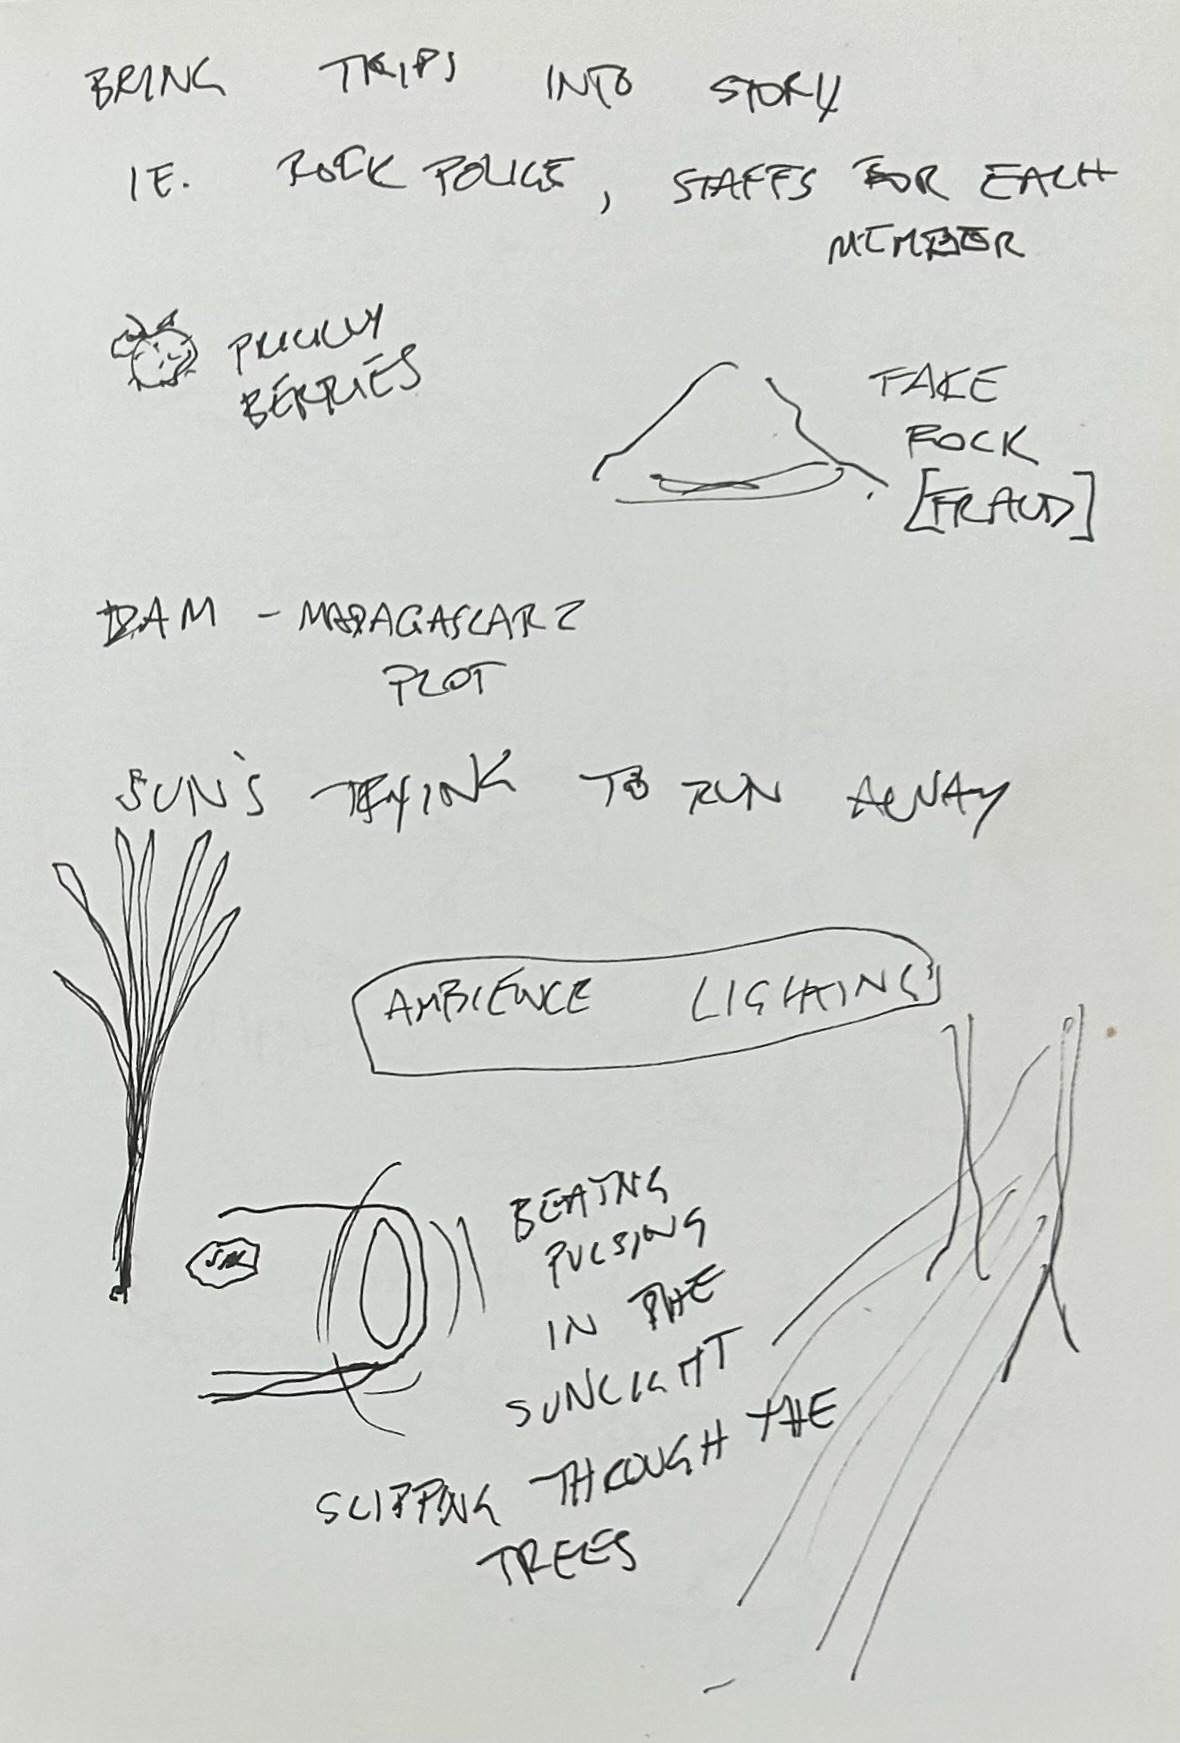 BRING TRIPS INTO STORY
IE. ROCK POLICE, STAFFS FOR EACH
MEMBER
PRICKLY
BERRIES
FAKE
ROCK
[FRAUD]
DAM - MADAGASCAR 2
PLOT
SUN'S TRYING TO RUN AWAY
AMBIENCE LIGHTING
BEATING
PULSING
IN THE
SUNLIGHT
SLIPPING THROUGH THE
TREES